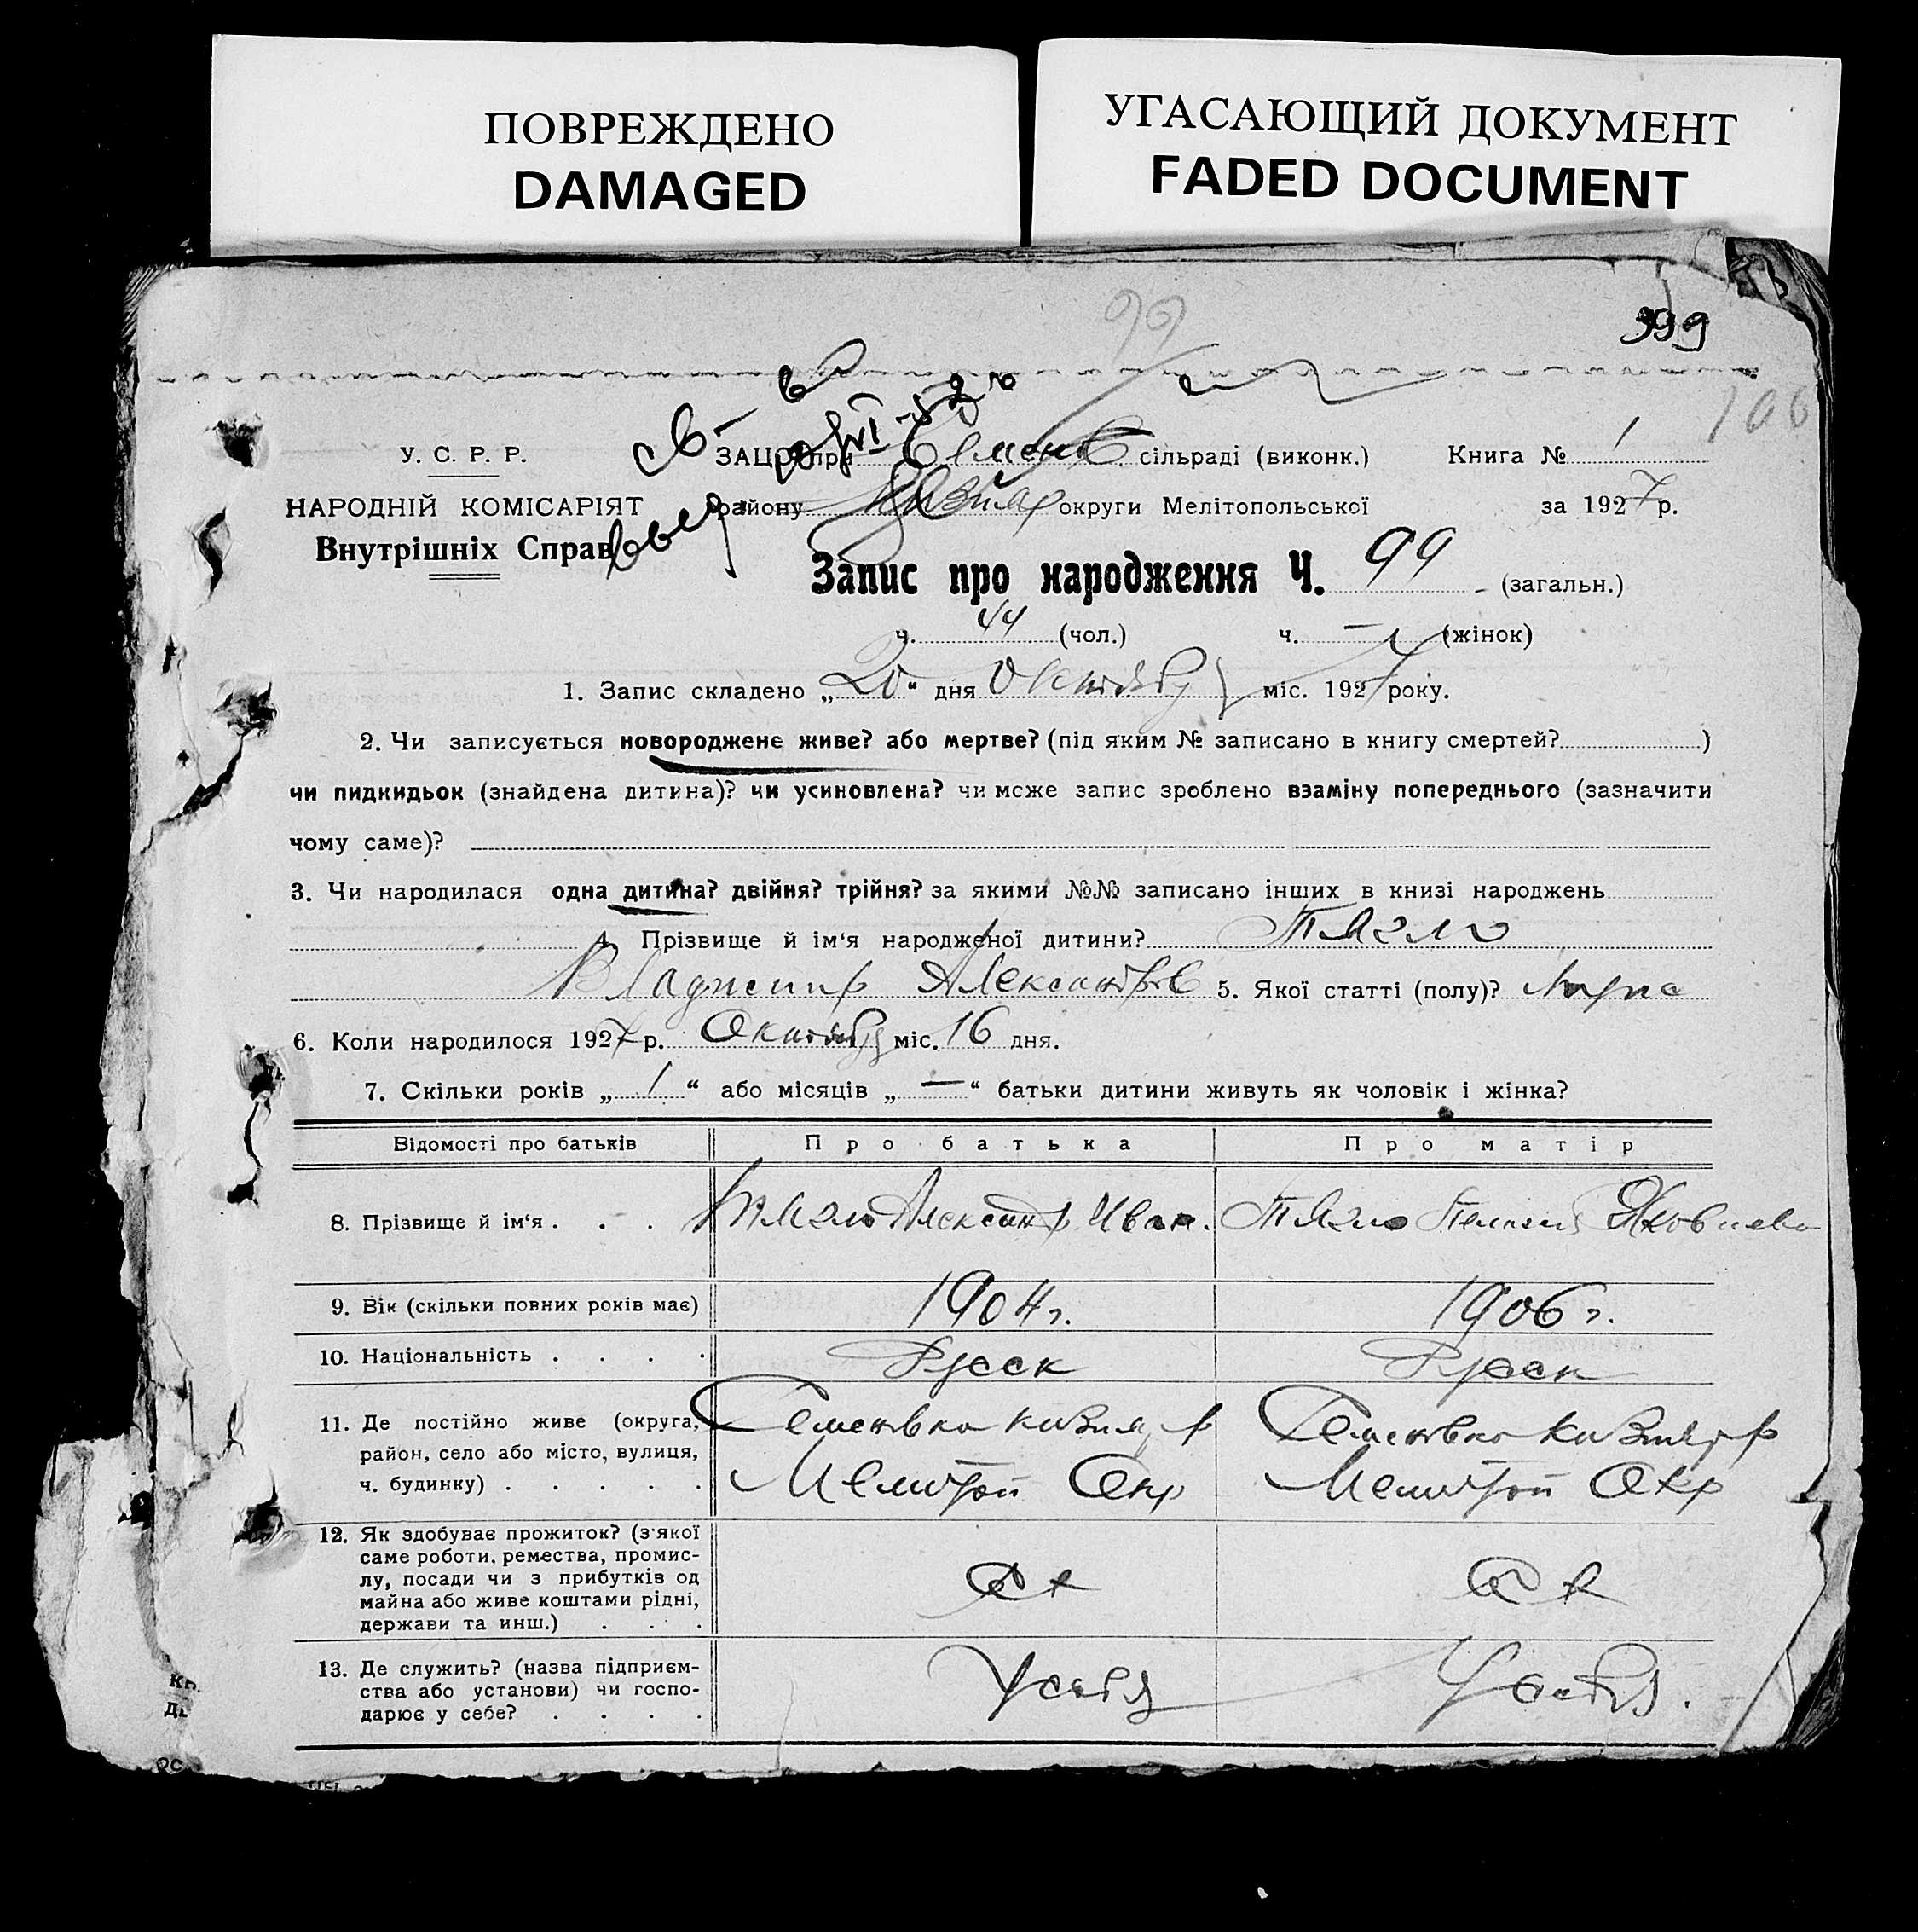 ПОВРЕЖДЕНО
DAMAGED
УГАСАЮЩИЙ ДОКУМЕНТ
FADED DOCUMENT
99
399
100
У. С. Р. Р.
ЗАЦС при Семенов. сільраді (виконк.) Книга № 1
НАРОДНІЙ КОМІСАРІЯТ
району Кизияр округи Мелітопольської за 1927 р.
Внутрішніх Справ
Запис про народження Ч. 99 (загальн.)
ч. 44 (чол.) ч. — (жінок)
1. Запис складено „20“ дня Октября міс. 1927 року.
2. Чи записується новороджене живе? або мертве? (під яким № записано в книгу смертей? )
чи пидкидьок (знайдена дитина)? чи усиновлена? чи може запис зроблено взаміну попереднього (зазначити
чому саме)?
3. Чи народилася одна дитина? двійня? трійня? за якими №№ записано інших в книзі народжень
4. Прізвище й ім‘я народженої дитини? Тягло
Владимир Александров 5. Якої статті (полу)?
6. Коли народилося 1927 р. Октября міс. 16 дня.
7. Скільки років „ 1 “ або місяців „ — “ батьки дитини живуть як чоловік і жінка?
Відомості про батьків Про батька Про матір
8. Прізвище й ім‘я . . . Тягло Александр Иван. Тягло Яковлева
9. Вік (скільки повних років має) 1904 г. 1906 г.
10. Національність . . . . Русск Русск
11. Де постійно живе (округа, Семеновка Кизияр р Семеновка Кизияр р
район, село або місто, вулиця,
ч. будинку) . . . . . Мелитоп Окр Мелитоп Окр
12. Як здобуває прожиток? (з'якої
саме роботи, ремества, промис-
лу, посади чи з прибутків од
майна або живе коштами рідні,
держави та инш.) . . .
13. Де служить? (назва підприєм-
ства або установи) чи госпо- У себя У себя.
дарює у себе? . . . .